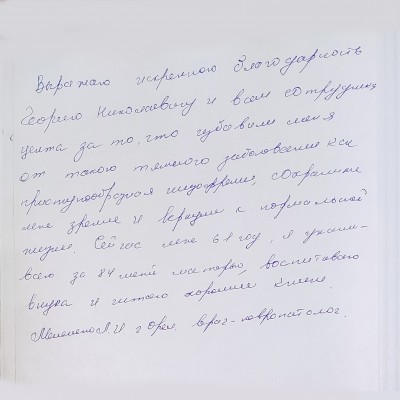 Выражаю искреннюю благодарность
Георгию Николаевичу и всем сотрудникам
центра за то, что избавили меня
от такого тяжелого заболевания как
приступообразная шизофрения, сохранили
мне зрение и вернули к нормальной
жизни. Сейчас мне 61 год, я ухажи-
ваю за 84 летней матерью, воспитываю
внука и читаю хорошие книги.
Л.И г Орел, врач-невропатолог.